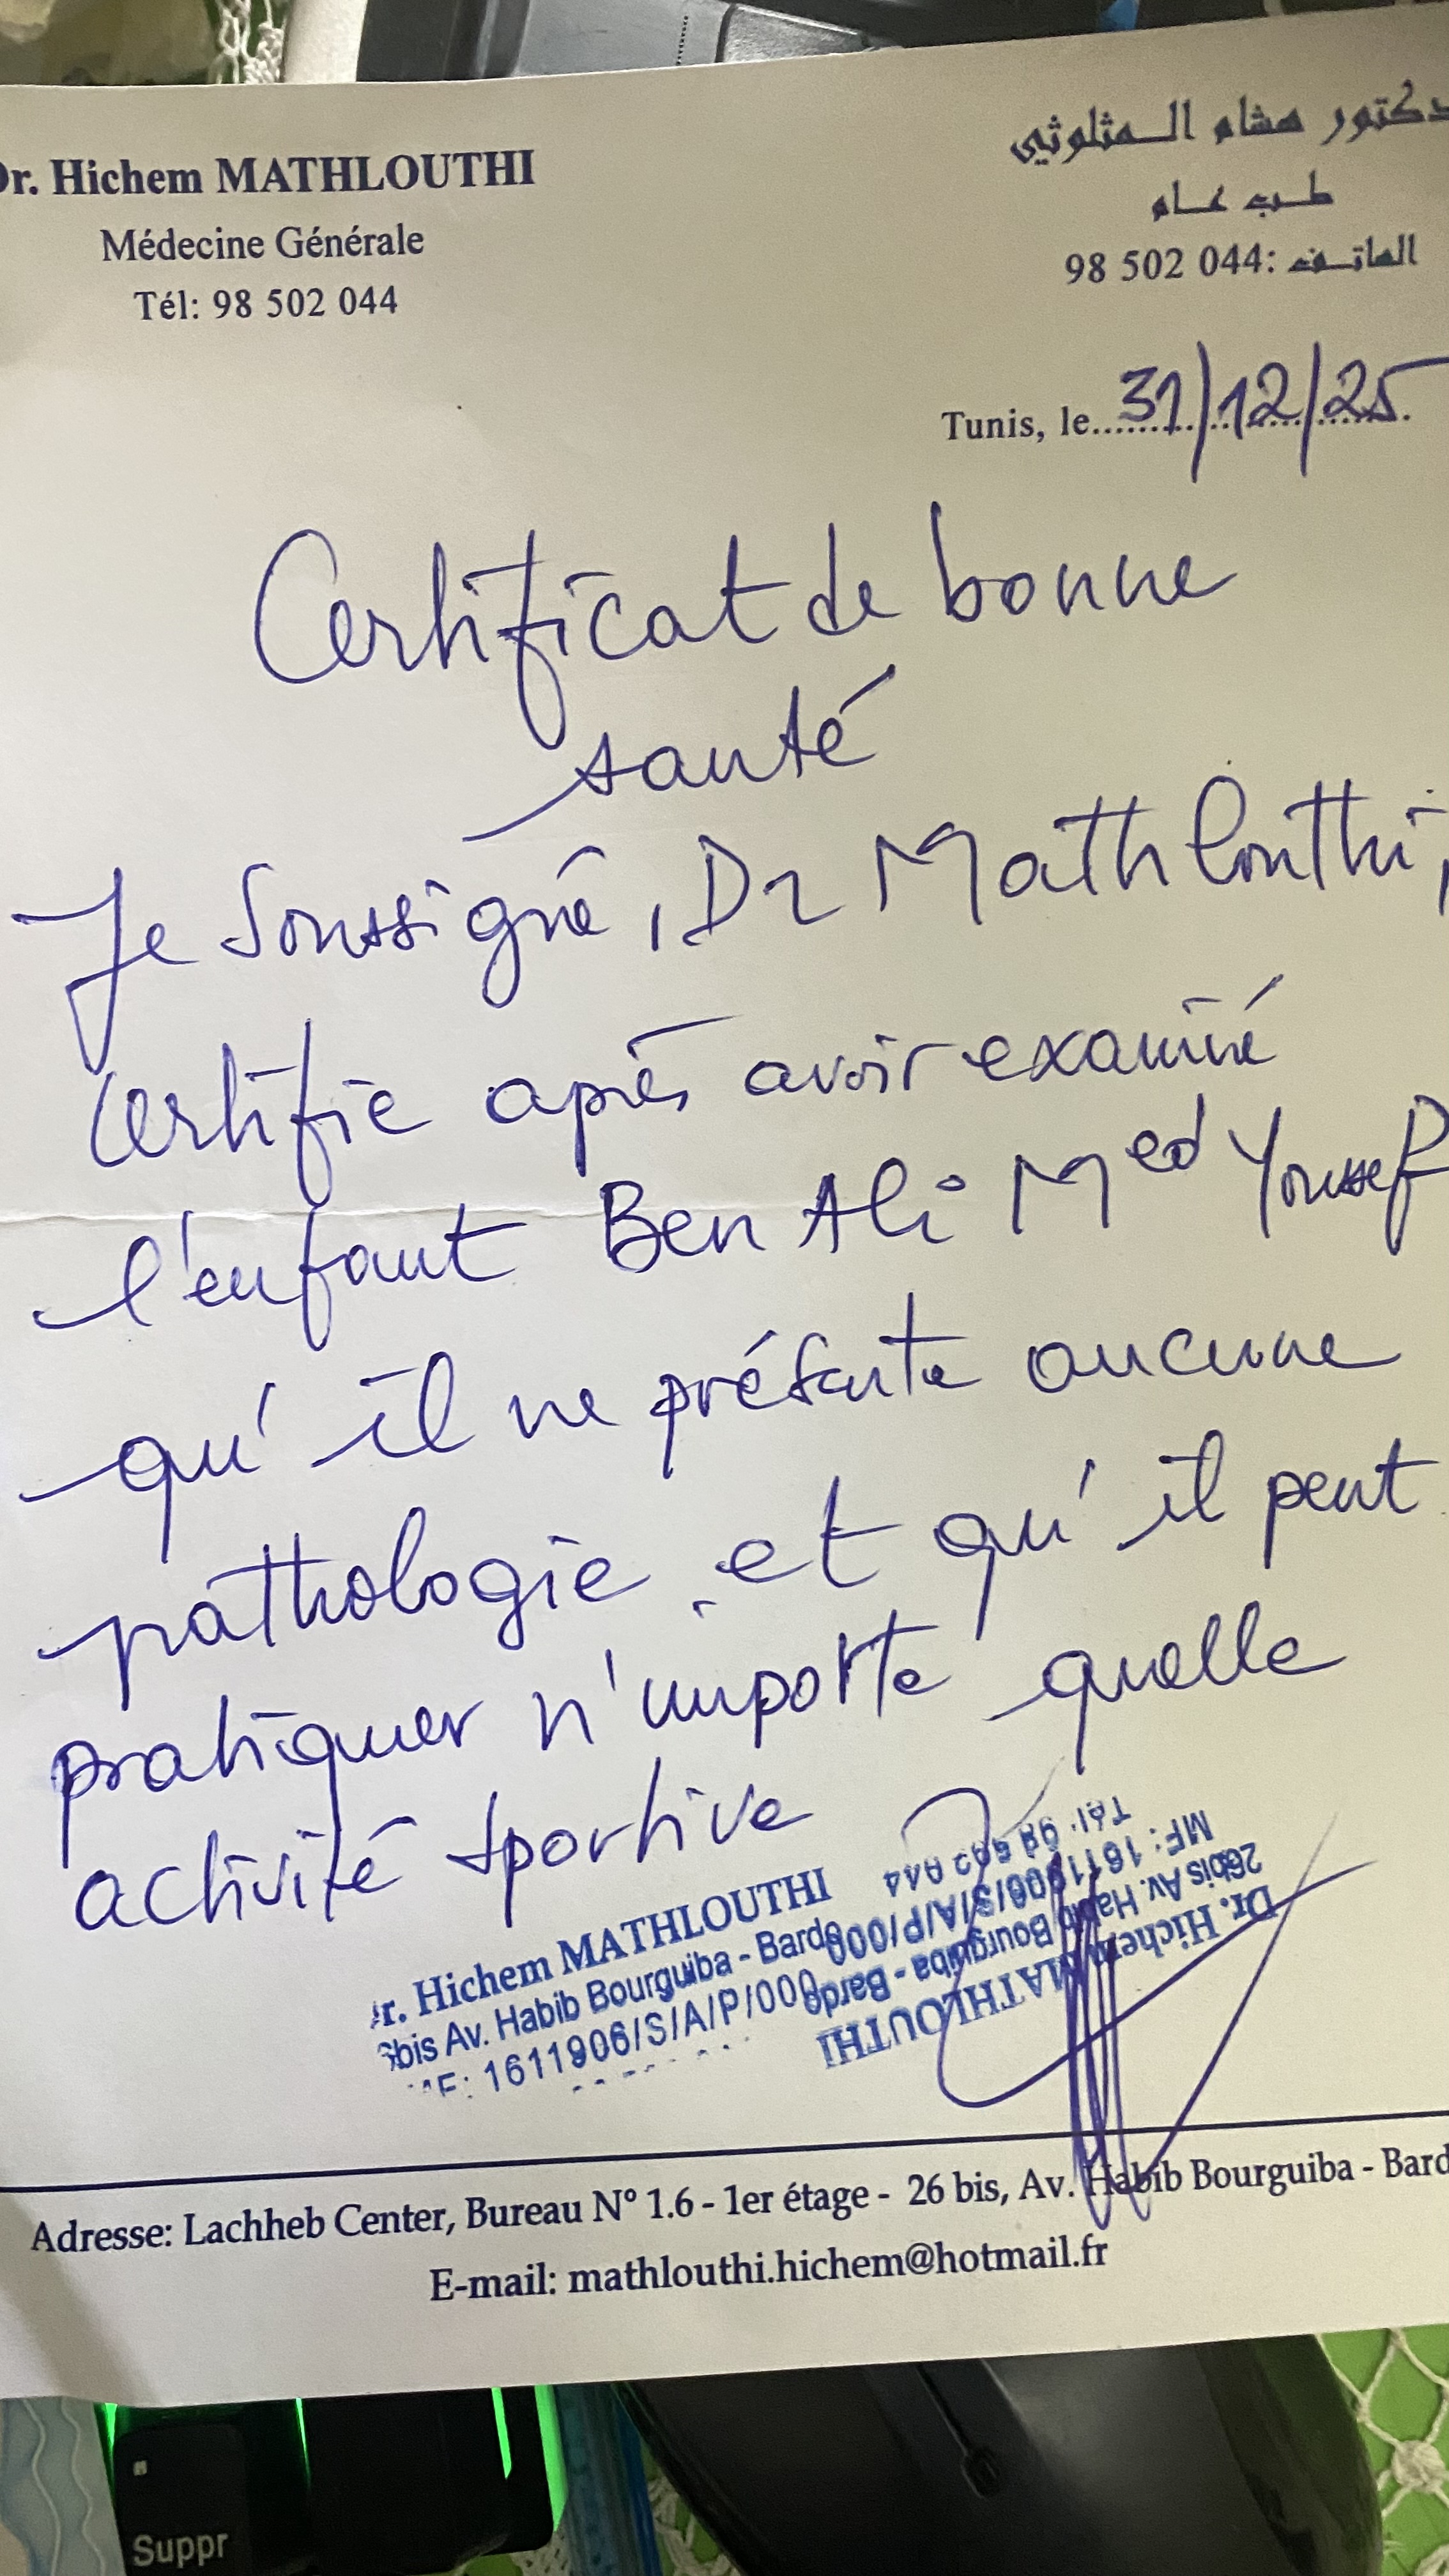 Dr. Hichem MATHLOUTHI
Médecine Générale
Tél: 98 502 044
دكتور هشام المثلوثي
طب عام
الهاتف: 98 502 044
Tunis, le 31/12/25
Certificat de bonne
santé
Je Soussigné, Dr Mathlouthi,
certifie après avoir examiné
l'enfant Ben Ali Med Youssef
qu'il ne présente aucune
pathologie, et qu'il peut
pratiquer n'importe quelle
activité sportive
r. Hichem MATHLOUTHI
bis Av. Habib Bourguiba - Bardo
MF: 1611906/S/A/P/000
Dr. Hichem MATHLOUTHI
26bis Av. Habib Bourguiba - Bardo
MF: 1611906/S/A/P/000
Tél. 98 502 044
Adresse: Lachheb Center, Bureau N° 1.6 - 1er étage - 26 bis, Av. Habib Bourguiba - Bard
E-mail: mathlouthi.hichem@hotmail.fr
Suppr